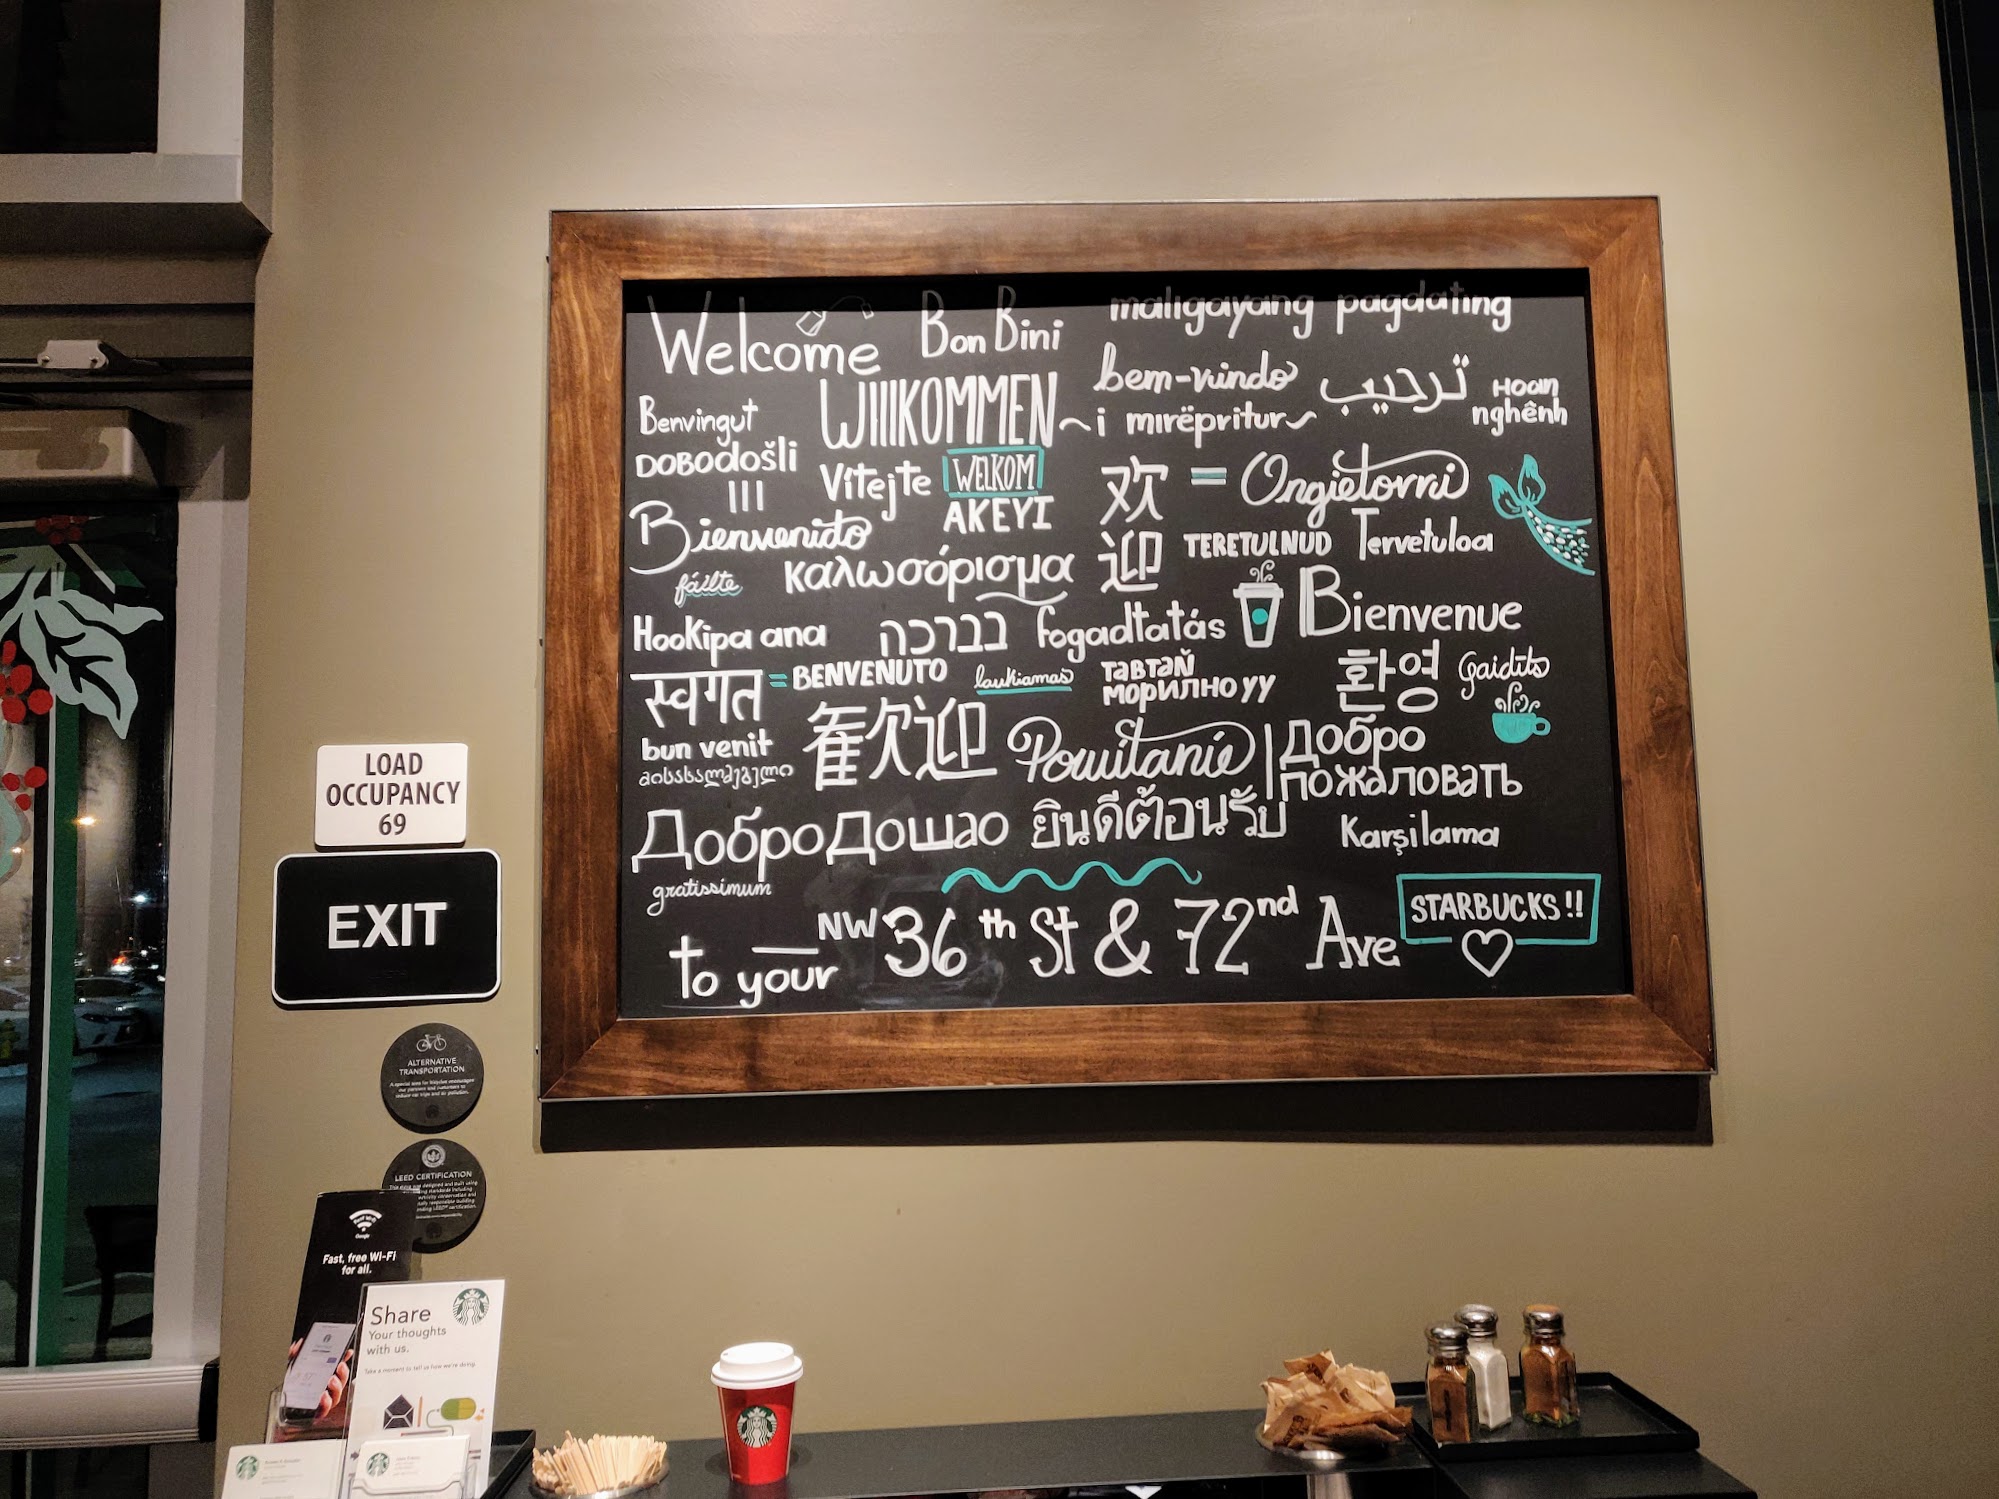 Welcome
Bon Bini
maligayang pagdating
Benvingut
WIllKOMMEN
bem-vindo
ترحيب
Hoan
nghênh
~i mirëpritur~
DOBODOŠLI
!!!
Vítejte
WELKOM
AKEYI
欢
迎
=
Ongietorri
Bienvenido
fáilte
καλωσόρισμα
TERETULNUD
Tervetuloa
Hookipa ana
בברכה
fogadtatás
Bienvenue
स्वगत
=
BENVENUTO
laukiamas
тавтай
морилно уу
환영
gaidīts
bun venit
მისასალმებელი
歡迎
Powitanie
Добро
пожаловать
Добро Дошао
ยินดีต้อนรับ
Karşilama
gratissimum
to your
NW 36th St & 72nd Ave
STARBUCKS!!
LOAD
OCCUPANCY
69
EXIT
ALTERNATIVE
TRANSPORTATION
LEED CERTIFICATION
Google
Fast, free Wi-Fi
for all.
Share
Your thoughts
with us.
Take a moment to tell us how we're doing.